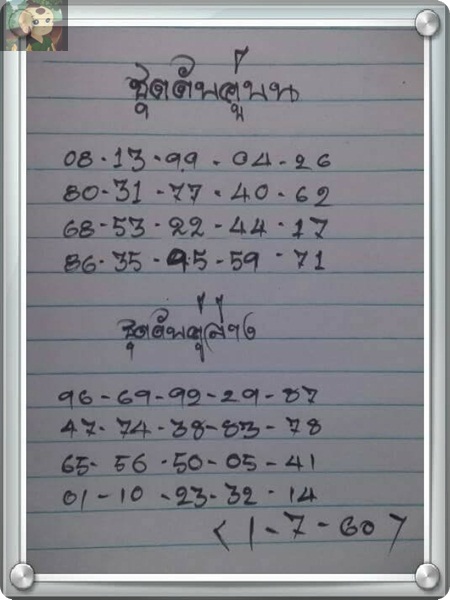 ชุดดับคู่บน
08.13.99.04.26
80.31.77.40.62
68-53.22-44.17
86.35.95-59.71
ชุดดับคู่ล่าง
96-69-92-29-87
47-74-38-83-78
65-56-50-05-41
01-10-23-32-14
(1-7-60)